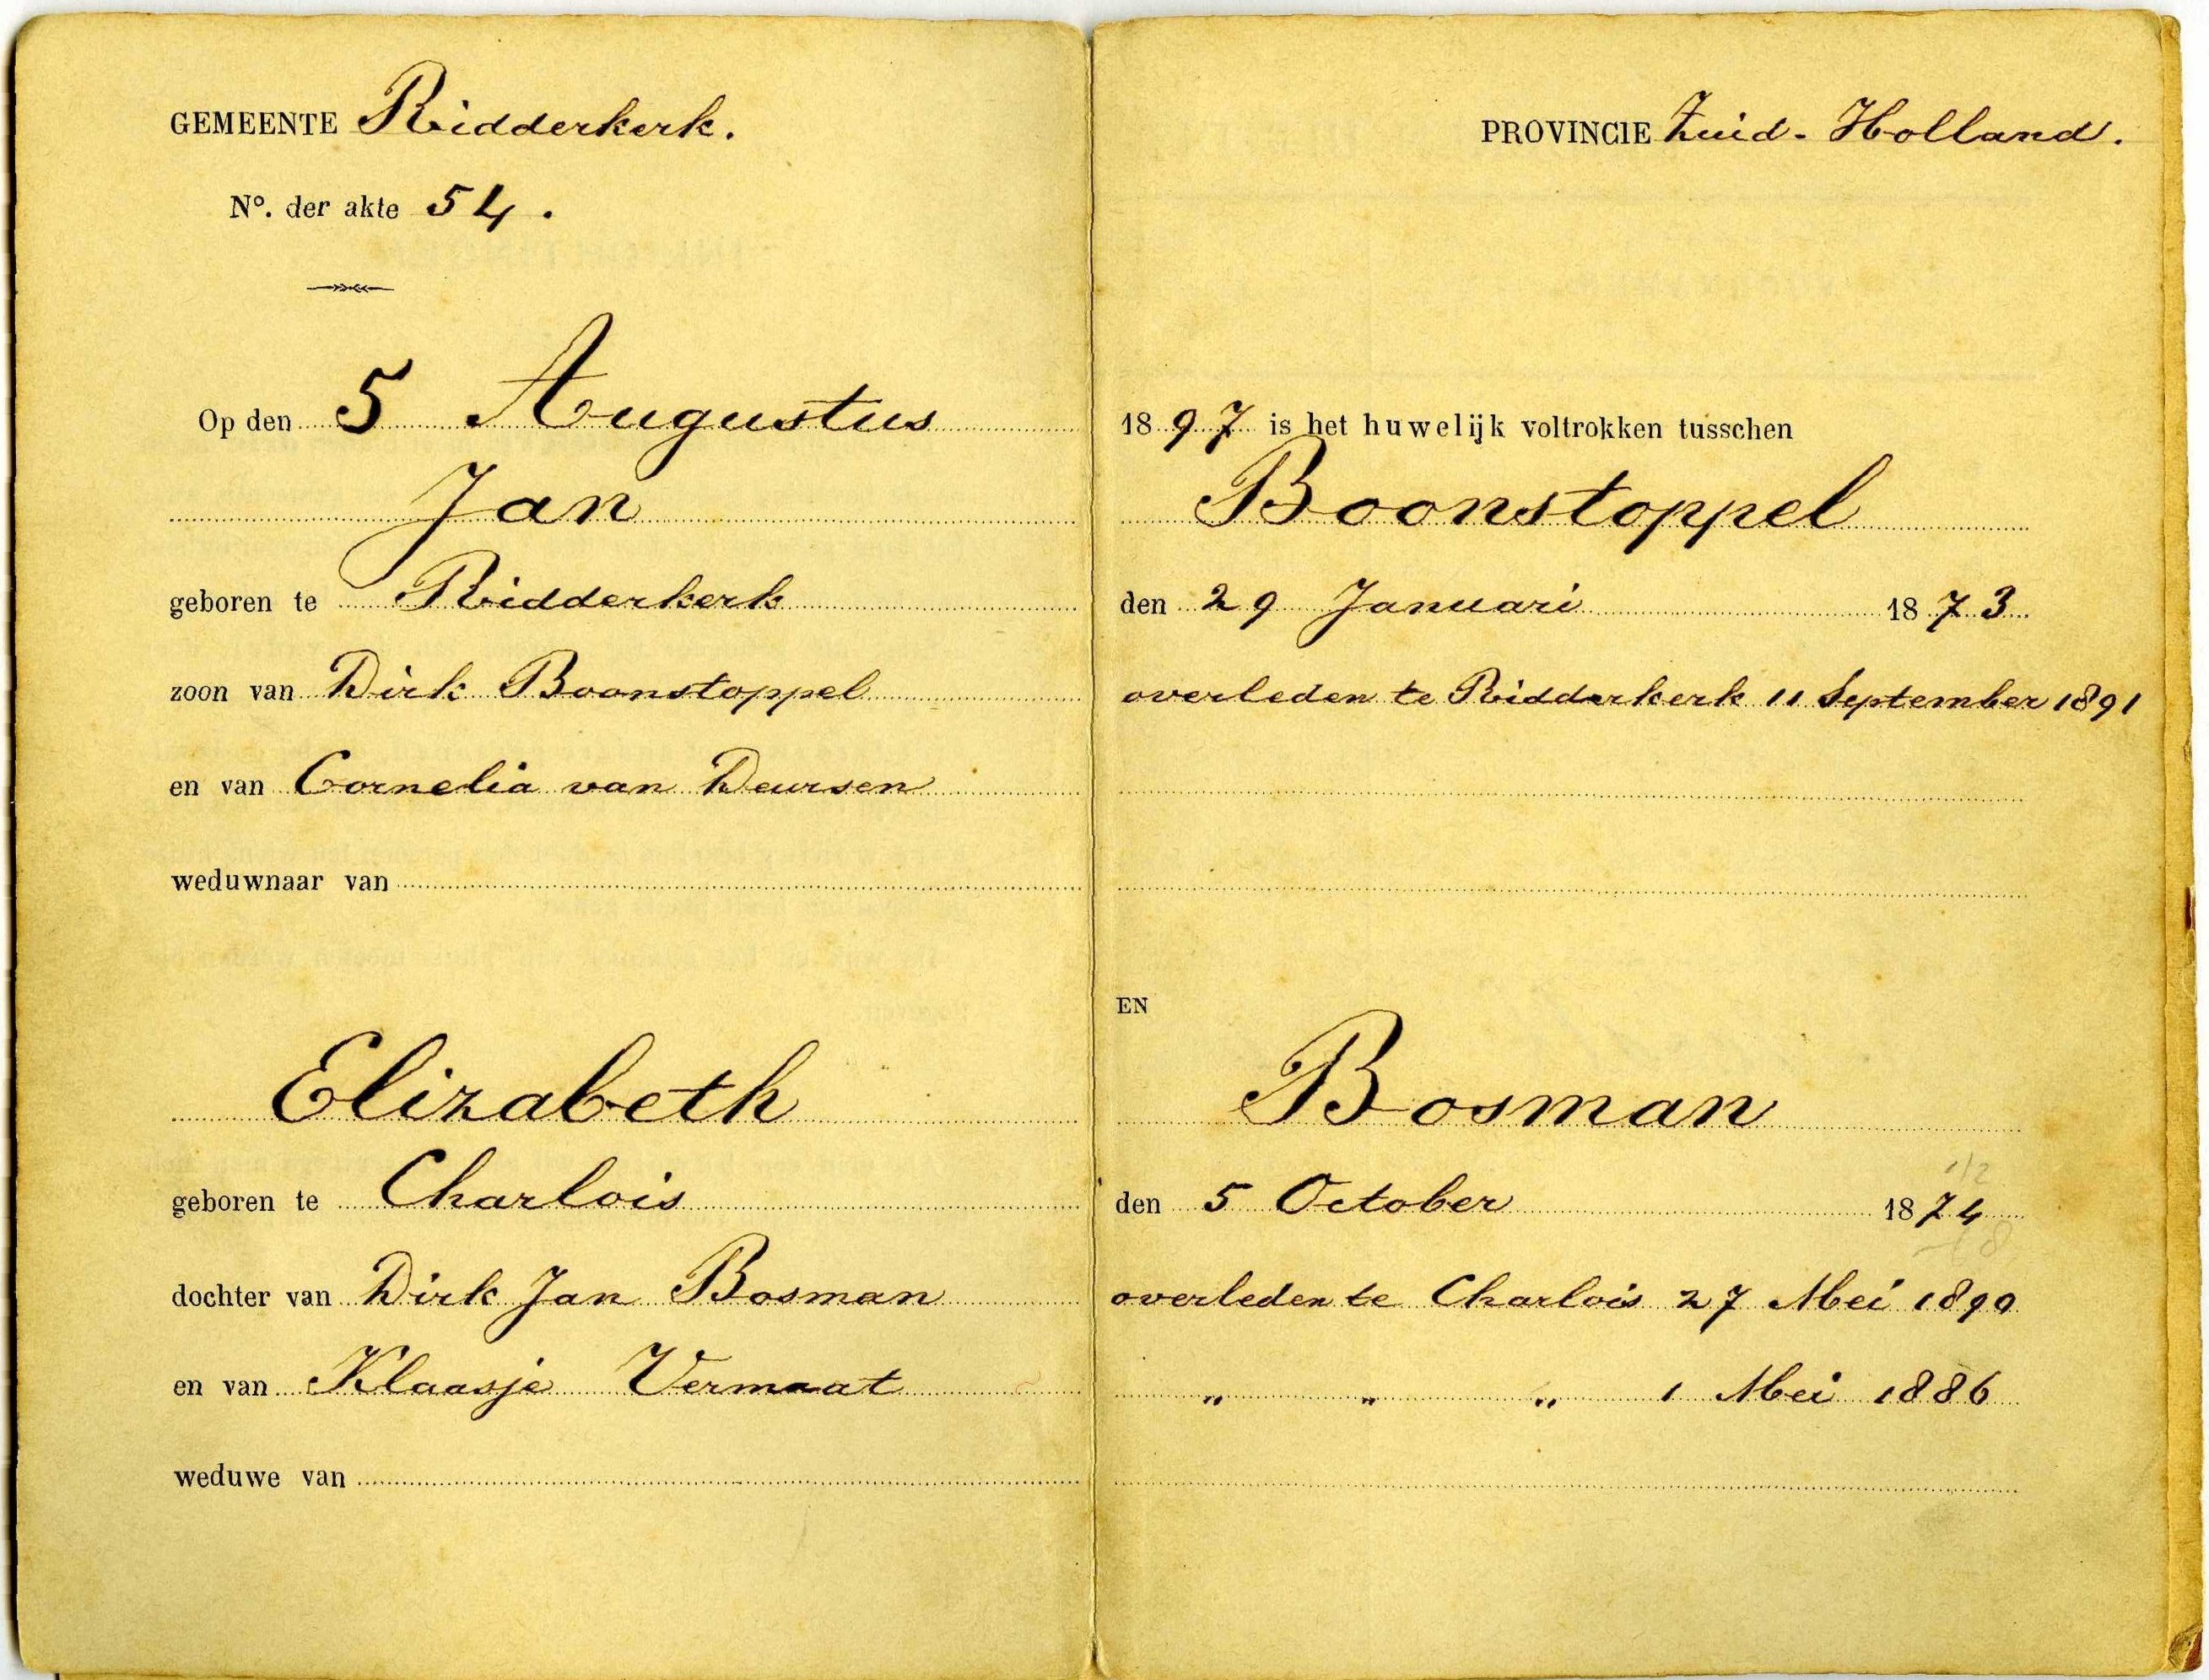 GEMEENTE Ridderkerk.
PROVINCIE Zuid-Holland.
Nº. der akte 54.
Op den 5 Augustus 1897 is het huwelijk voltrokken tusschen
Jan Boonstoppel
geboren te Ridderkerk den 29 Januari 1873
zoon van Dirk Boonstoppel overleden te Ridderkerk 11 September 1891
en van Cornelia van Deursen
weduwnaar van
EN
Elizabeth Bosman
geboren te Charlois den 5 October 1874
dochter van Dirk Jan Bosman overleden te Charlois 27 Mei 1890
en van Klaasje Vermaat " " " 1 Mei 1886
weduwe van